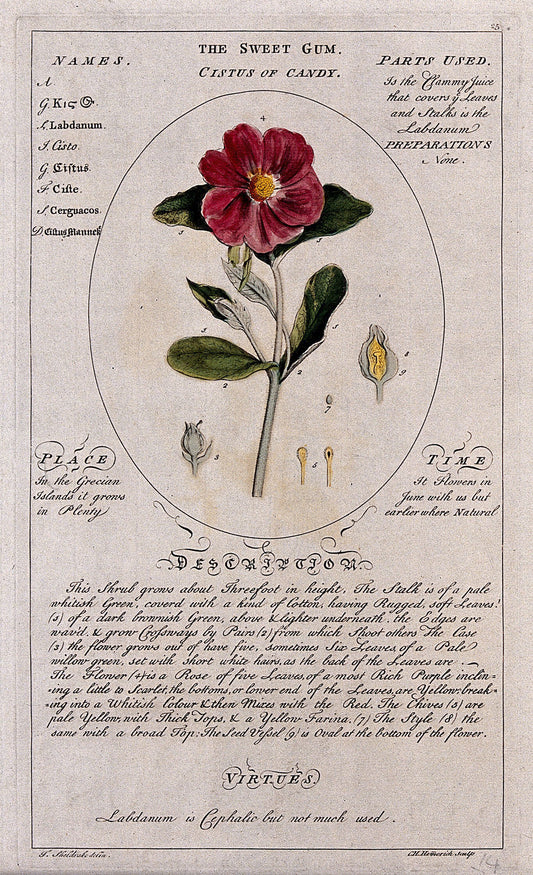 25
THE SWEET GUM.
CISTUS OF CANDY.
NAMES.
A
G. Κις
L. Labdanum.
I. Cisto.
G. Cistus.
F. Ciste.
S. Cerguacos.
D. Cistus Mannek
PARTS USED.
Is the Clammy Juice
that covers ẏ Leaves
and Stalks is the
Labdanum
PREPARATIONS
None.
4
5
5
5
2
2
3
7
8
9
5
PLACE
In the Grecian
Islands it grows
in Plenty
TIME
It Flowers in
June with us but
earlier where Natural
DESCRIPTION
This Shrub grows about Threefoot in height, The Stalk is of a pale
whitish Green, coverd with a kind of Cotton, having Rugged, soft Leaves!
(5) of a dark brownish Green, above & lighter underneath, the Edges are
wav'd, & grow Crossways by Pairs (2) from which Shoot others The Case
(3) the flower grows out of have five, sometimes Six Leaves, of a Pale
willow green, set with short white hairs, as the back of the Leaves are. –
The Flower (4) is a Rose of five Leaves, of a most Rich Purple inclin-
ing a little to Scarlet, the bottoms, or lower end of the Leaves, are Yellow, break-
ing into a Whitish Colour & then Mixes with the Red. The Chives (5) are
pale Yellow, with Thick Tops, & a Yellow Farina, (7) The Style (8) the
same with a broad Top: The Seed Vessel (9) is Oval at the bottom of the flower.
VIRTUES.
Labdanum is Cephalic but not much used.
T. Sheldrake delin.
C.H. Hemerich Sculp
14